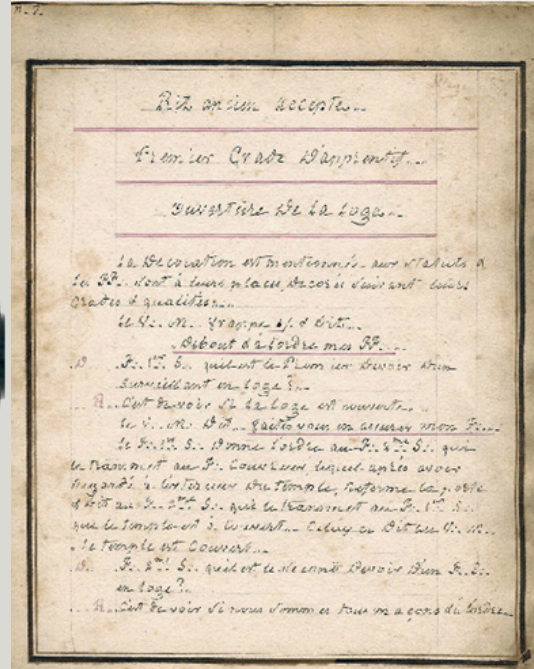 n. 2.
Rit ancien accepté..
Premier Grade D'apprentif...
Ouverture De La Loge..
La Décoration est mentionnée aux Statuts &
les FF. sont à leurs places, Décorés suivant leurs
Grades & qualités...
le V.. M.. frappe & dit..
Debout & à l'ordre mes FF...
D. F.. 1er S.. quel est le Premier Devoir D'un
Surveillant en Loge?..
R. C'est de voir Si la Loge est couverte..
le V.. M.. Dit.. faites vous en assurer mon F...
le F.. 1er S.. Donne l'ordre au F.. 2me S.. qui
le transmet au F.. Couvreur, lequel après avoir
regardé à l'extérieur Du temple, referme la porte
& Dit au F.. 2me S.. qui le transmet au F.. 1er S..
que le temple est couvert.. Celui ci Dit au V.. M..
le temple est Couvert..
D. F.. 2me S.. quel est le second Devoir D'un F.. S..
en Loge?..
R. C'est de voir Si nous sommes tous maçons à l'ordre..